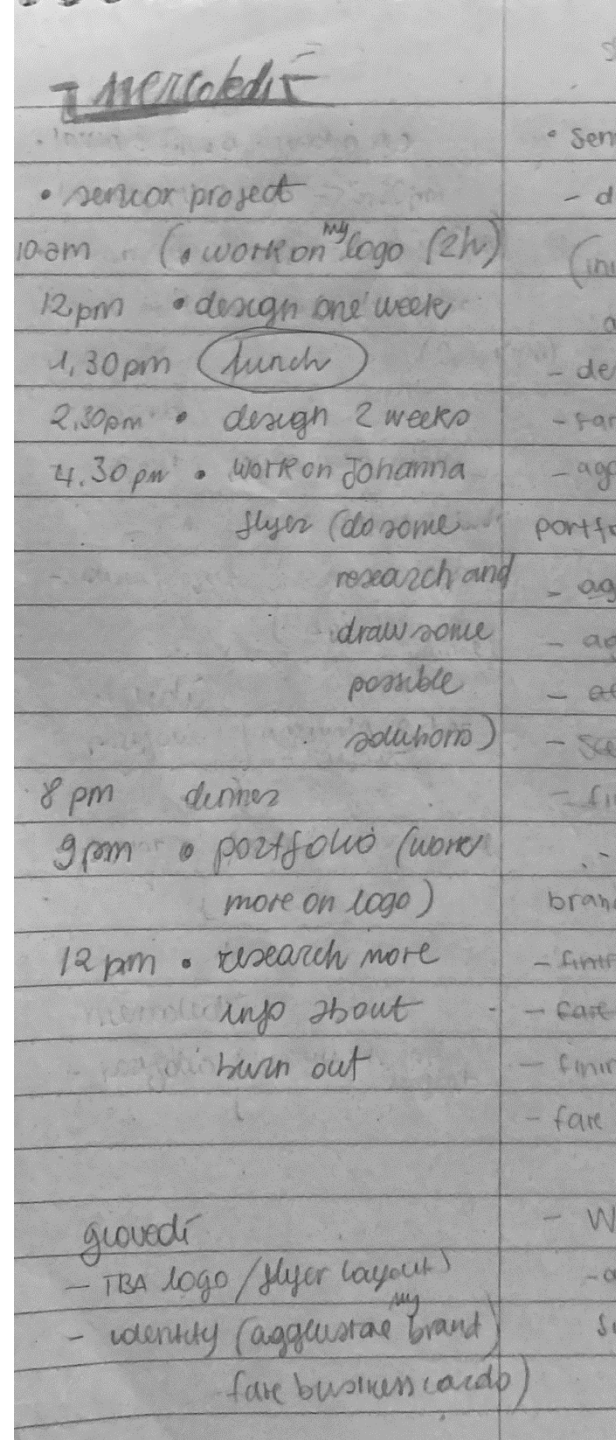 mercoledì
• senior project
10 am (• work on my logo (2h)
12 pm • design one week
1,30 pm lunch
2,30 pm • design 2 weeks
4.30 pm • work on Johanna
flyer (do some
research and
draw some
possible
solutions)
8 pm dinner
9 pm • portfolio (work
more on logo)
12 pm • research more
info about
burn out
giovedì
- TBA logo / flyer layout
- identity (aggiustare my brand)
fare business cards)
• sen
- d
(ini
a
- de
- far
- agg
portfo
- ag
- ag
- sce
- fi
brand
- fare
- finir
- fare
- W